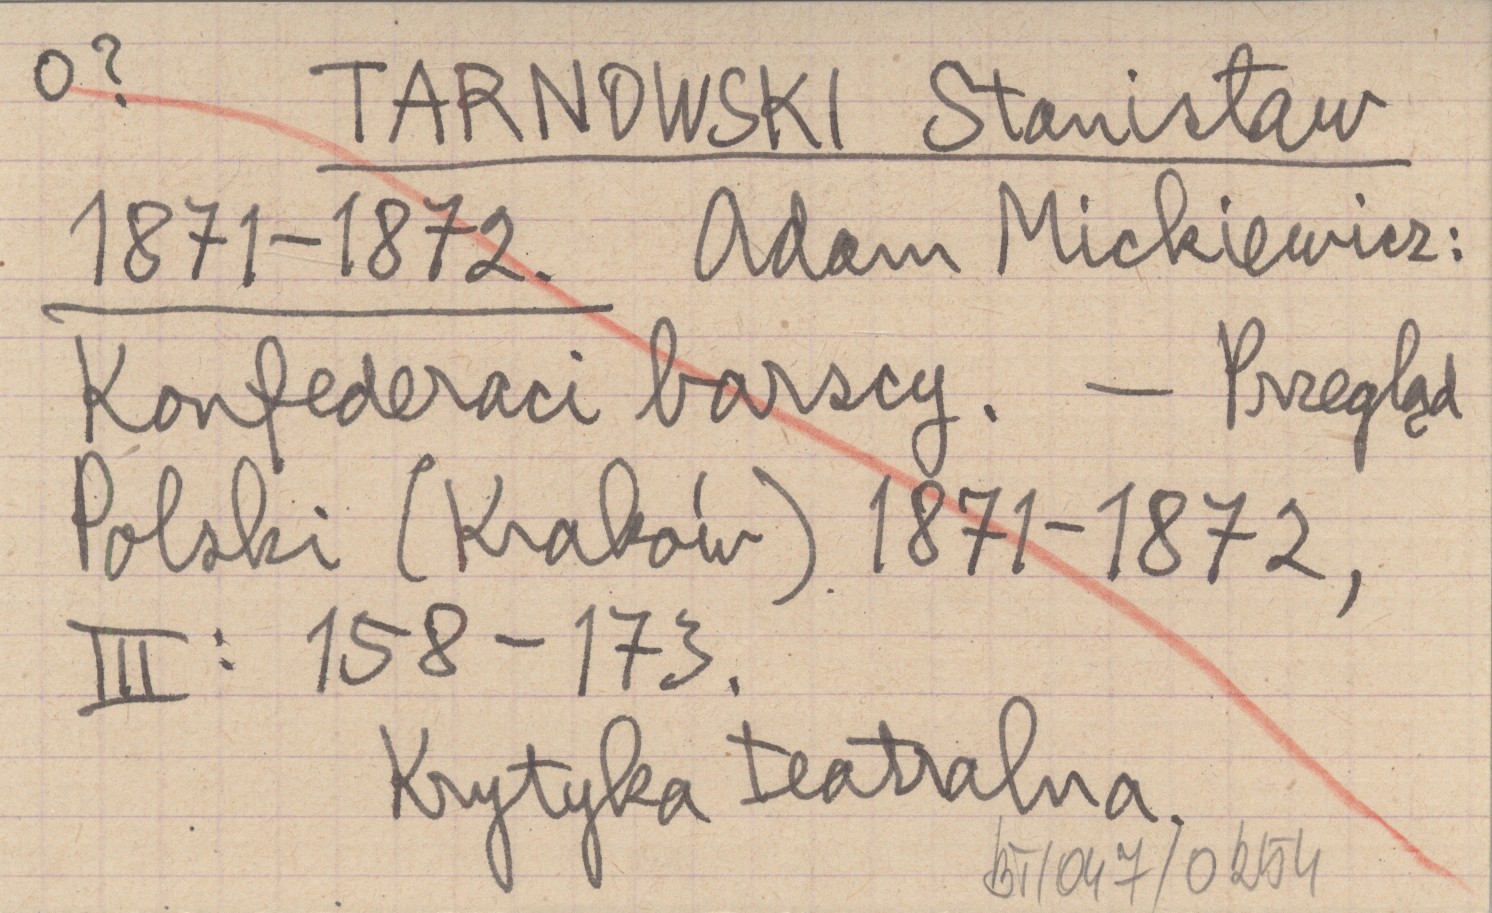 o? TARNOWSKI Stanisław
1871-1872. Adam Mickiewicz:
Konfederaci barscy. — Przegląd
Polski (Kraków) 1871-1872,
III: 158-173.
Krytyka teatralna.